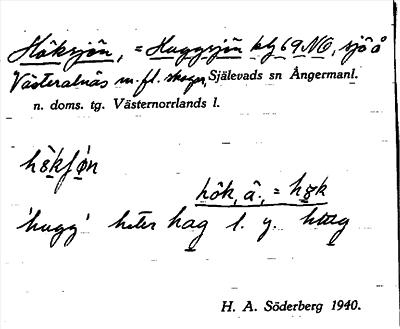 Höksjön, = Huggsjön blg 69 NO, sjö å
Västeralnäs m. fl. skogar, Själevads sn Ångermanl.
n. doms. tg. Västernorrlands l.
hökſøn
hök, â., = høk
'hugg' heter hag l. y. hug
H. A. Söderberg 1940.